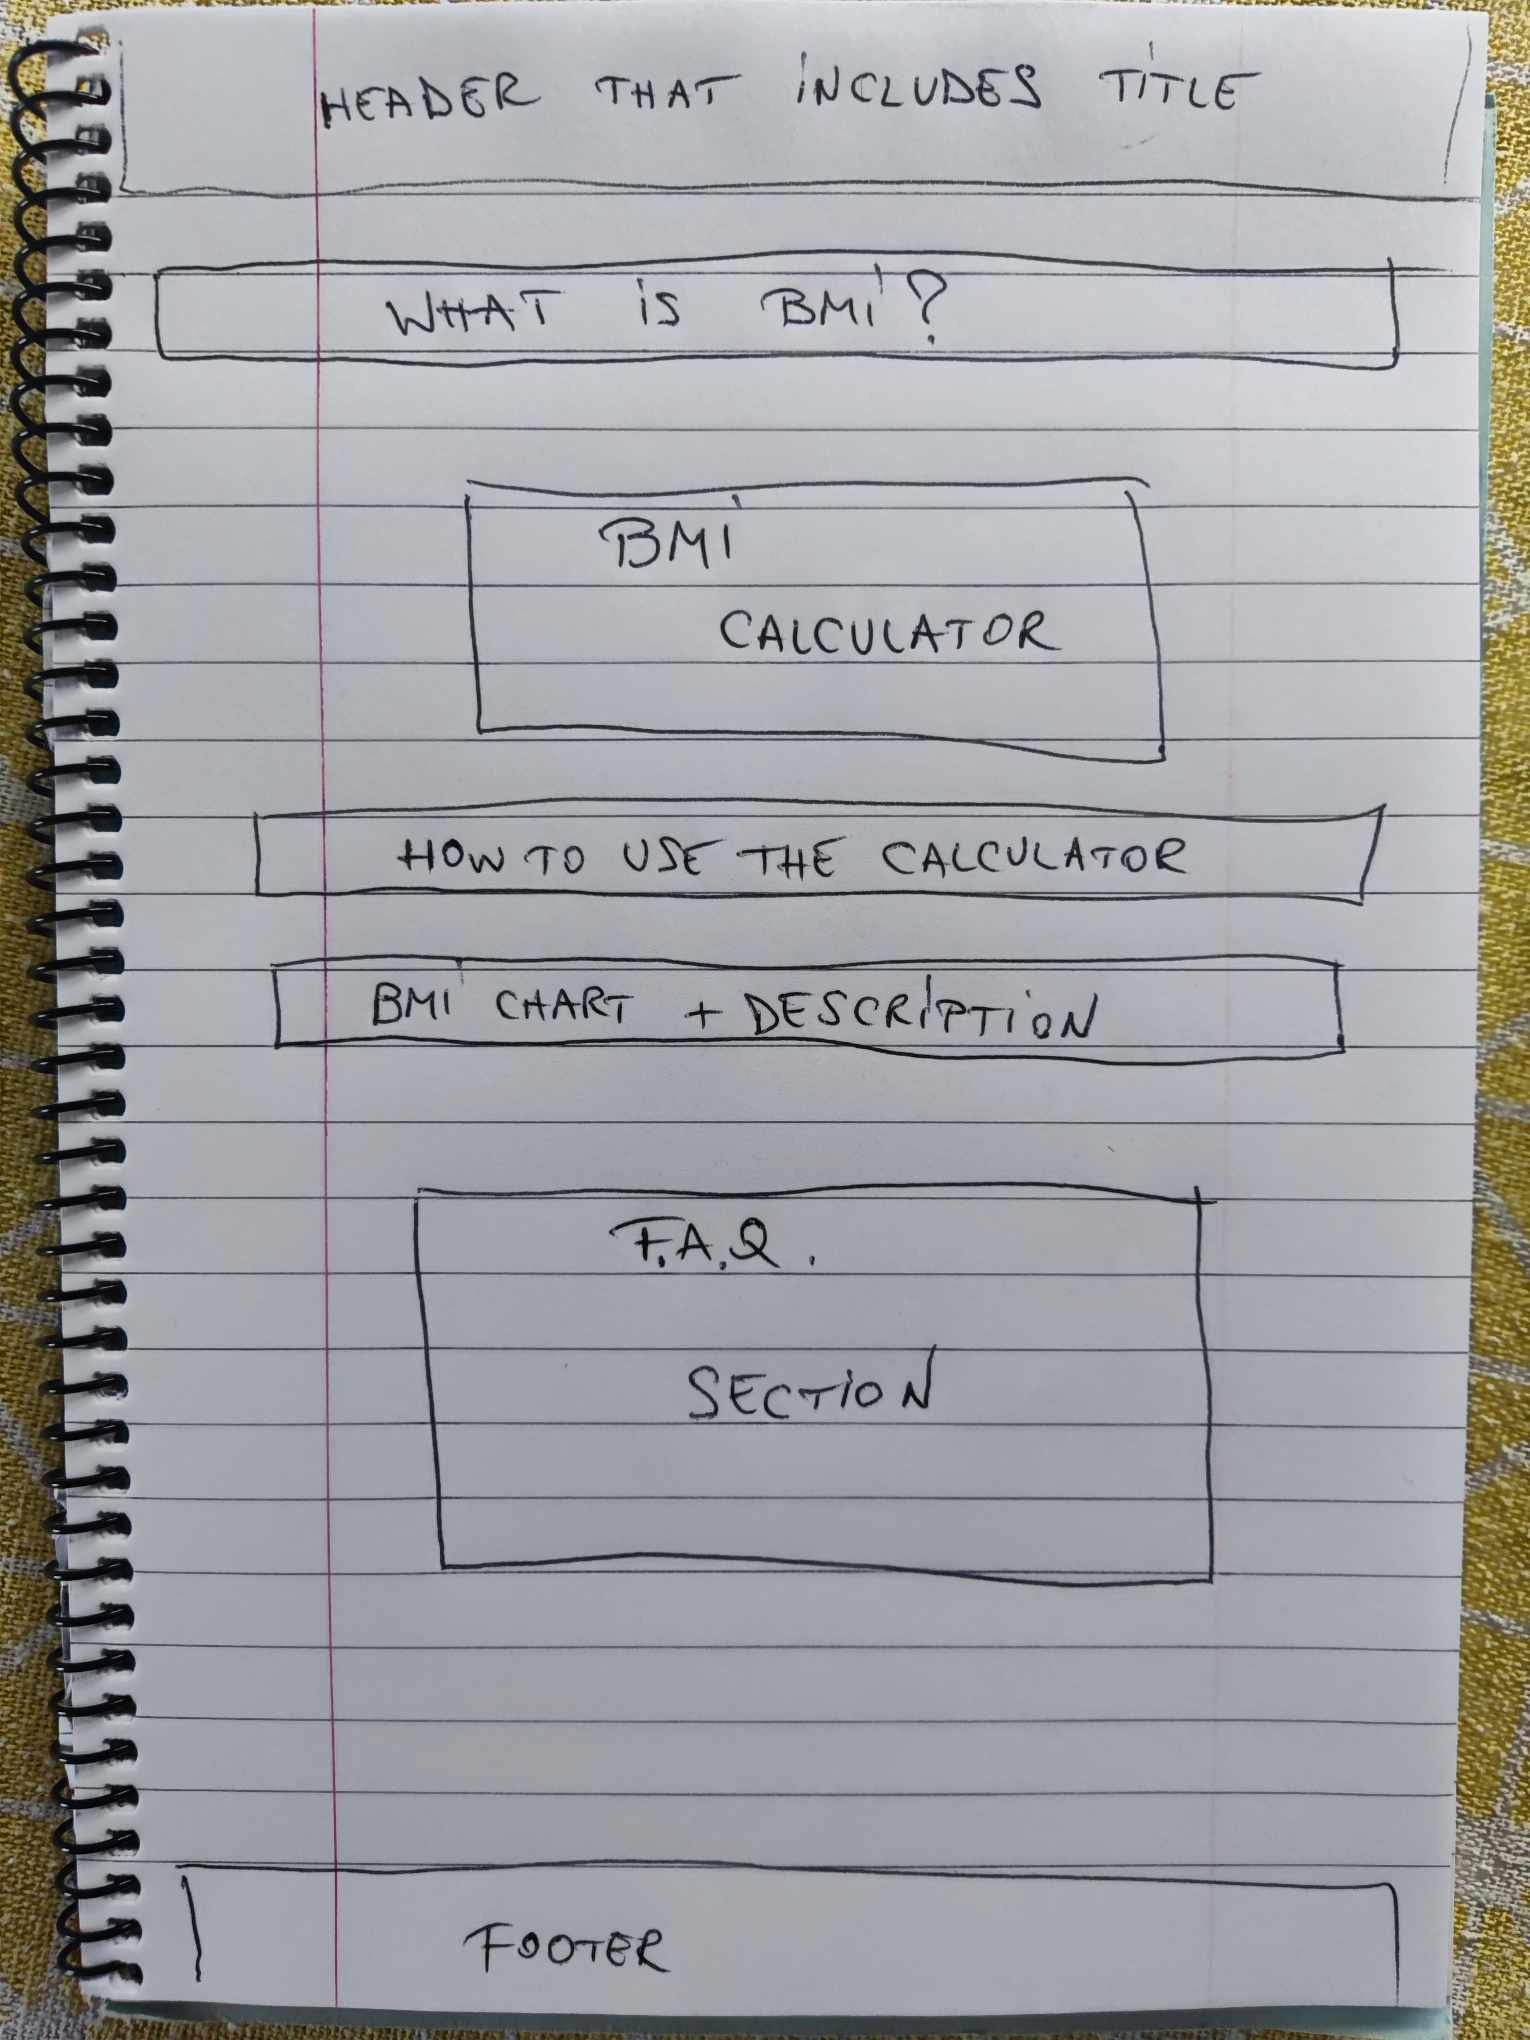 HEADER THAT INCLUDES TITLE
WHAT IS BMI?
BMI
CALCULATOR
HOW TO USE THE CALCULATOR
BMI CHART + DESCRIPTION
F.A.Q.
SECTION
FOOTER